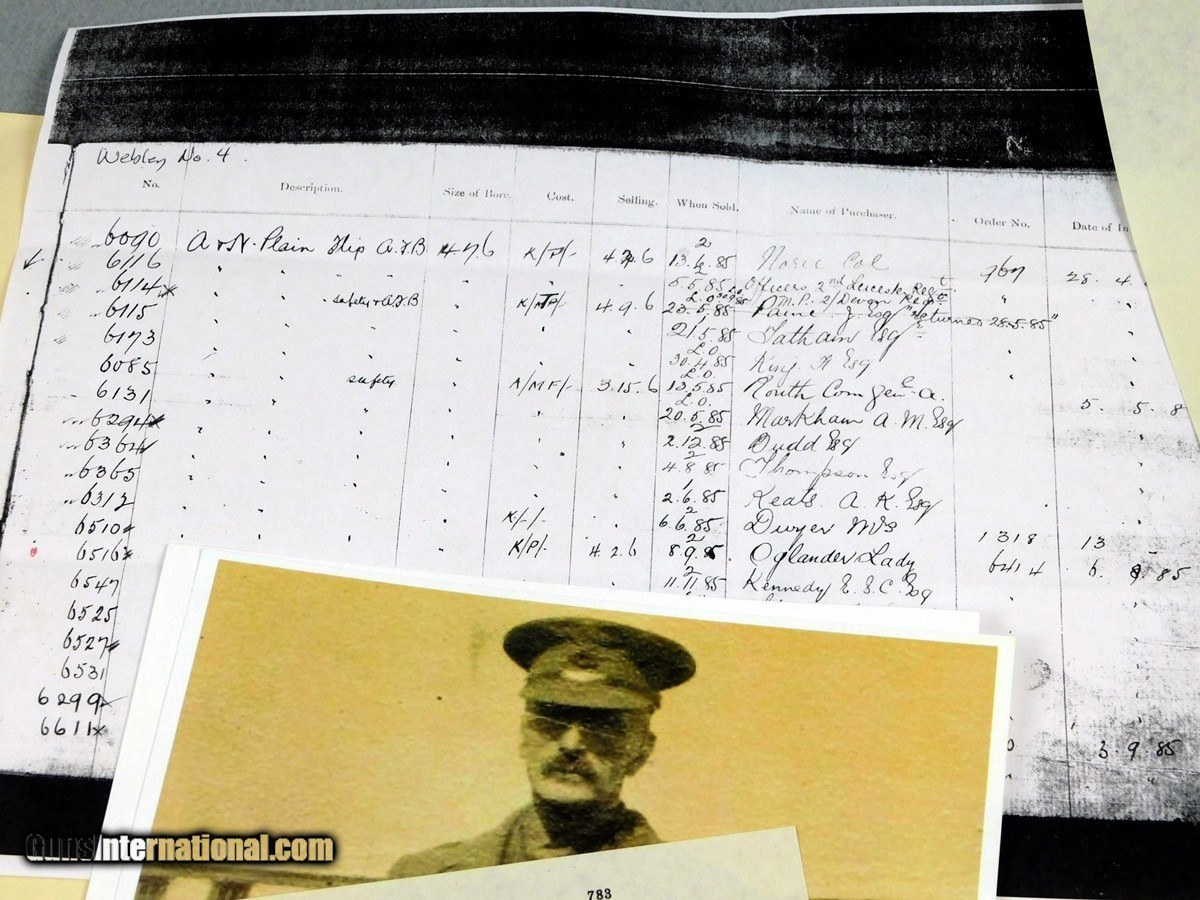 Webley No. 4.
No. Description. Size of Bore. Cost. Selling. When Sold. Name of Purchaser. Order No. Date of In
6090 A & N. Plain Hip A.F.B 476 K/ 4. 6 2 13. .85 Col 967 28. 4.
6116 " " 5.5.85 Officers 2nd Leicester Regt "
6114x " "
6115 " " safety & A.F.B K/ 4.9.6 23.5.85 Paine J. Esq "returned 28.5.85"
6173 " " " " 21.5.85 Tatham Esqre
6085 " " " " L.O. 30.4.85 King Esq
6131 " " safety A/MF/- 3.15.6 L.O. 13.5.85 Routh Com Genl. A. 5. 5. 8
6294x " " " " L.O. 20.5.85 Markham A. M. Esq
6364 " " 2 2.12.85 Budd Esq
6365 " " 2 4.8.85 Thompson Esq
6312 " " 1 2.6.85 Keats A. K. Esq
6510x K/-/- 2 6.6.85 Dwyer Mrs 1318 13
6516x K/P/- 4.2.6 2 8.9.85 Oglander Lady 6414 6. 8.85
6547 2 11.11.85 Kennedy E. S. C. Esq
6525
6527x
6531
6299x
6611x 3.9.85
GunsInternational.com
783